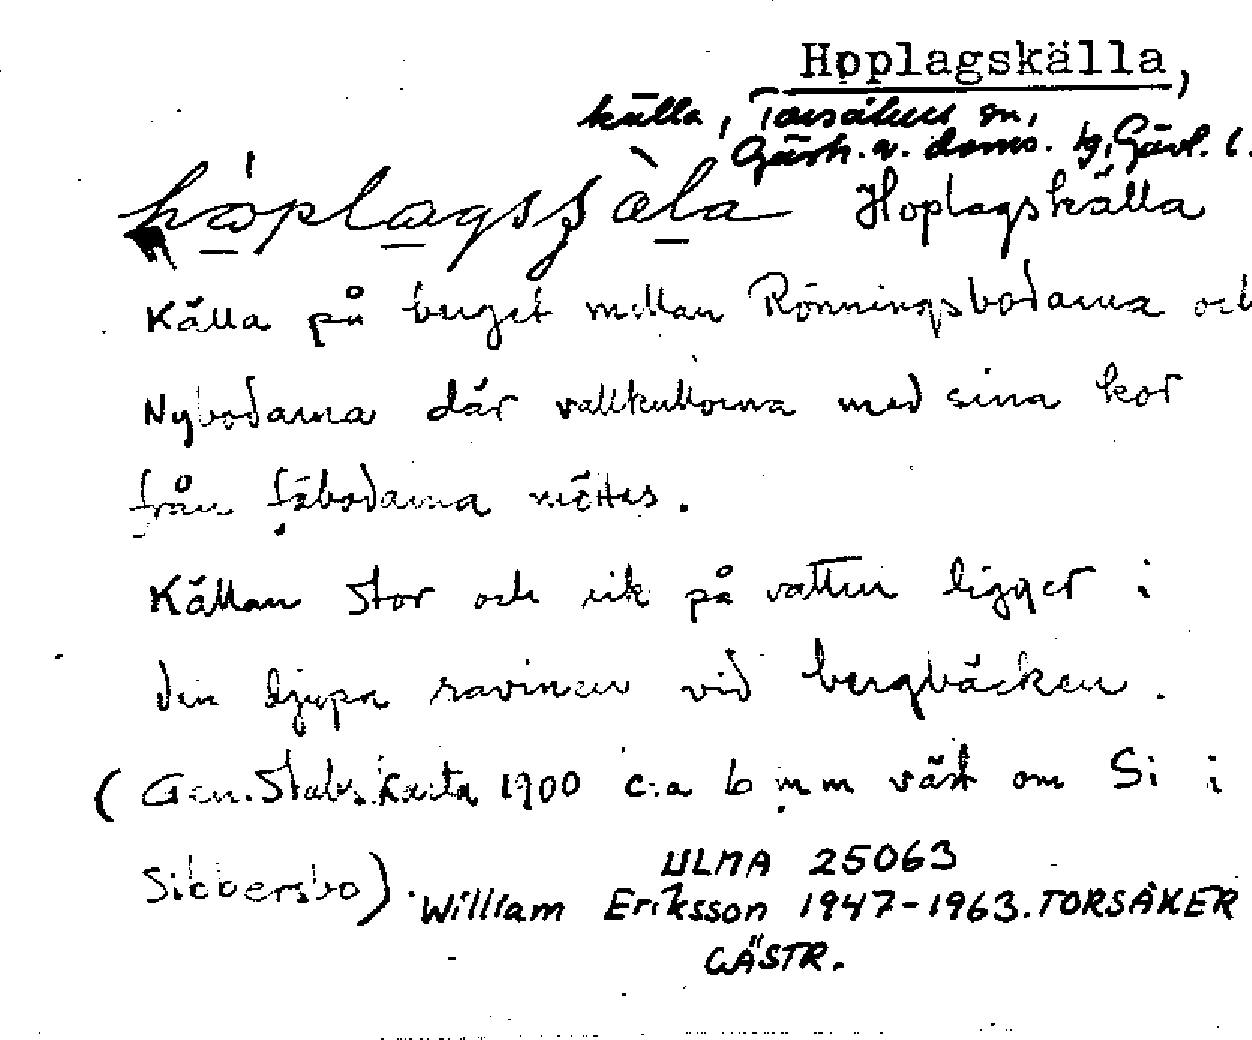 Hoplagskälla,
källa, Torsåkers sn,
Gästr. v. doms. tg, Gävl. l.
hóplagsʂὰla Hoplagskälla
Källa på berget mellan Rönningsbodarna och
Nybodarna där vallkullorna med sina kor
från fäbodarna möttes.
Källan stor och rik på vatten ligger i
den djupa ravinen vid bergbäcken.
(Gen. Stabs. karta 1900 c:a 6 mm väst om Si i
Sibbersbo).
ULMA 25063
William Eriksson 1947-1963. TORSÅKER
GÄSTR.